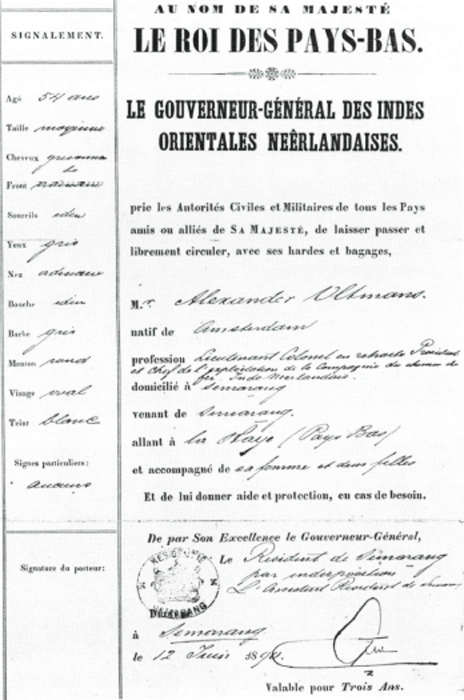 SIGNALEMENT.
Agé 54 ans
Taille moyenne
Cheveux
Front
Sourcils idem
Yeux gris
Nez ordinaire
Bouche idem
Barbe gris
Menton rond
Visage oval
Teint blanc
Signes particuliers:
aucuns
Signature du porteur:
AU NOM DE SA MAJESTÉ
LE ROI DES PAYS-BAS.
LE GOUVERNEUR-GÉNÉRAL DES INDES
ORIENTALES NEÊRLANDAISES.
prie les Autorités Civiles et Militaires de tous les Pays
amis ou alliés de SA MAJESTÉ, de laisser passer et
librement circuler, avec ses hardes et bagages,
M.r Alexander Oltmans.
natif de Amsterdam
profession Lieutenant Colonel en retraite Président
et chef de l'exploitation de la Compagnie du chemin de
fer Indo Néerlandais.
domicilié à Semarang
venant de Semarang.
allant à la Haye (Pays Bas)
et accompagné de sa femme et deux filles
Et de lui donner aide et protection, en cas de besoin.
De par Son Excellence le Gouverneur-Général,
Le Resident de Semarang
par interposition
L'Assistent Resident de
à Semarang
le 12 Juin
Valable pour Trois Ans.